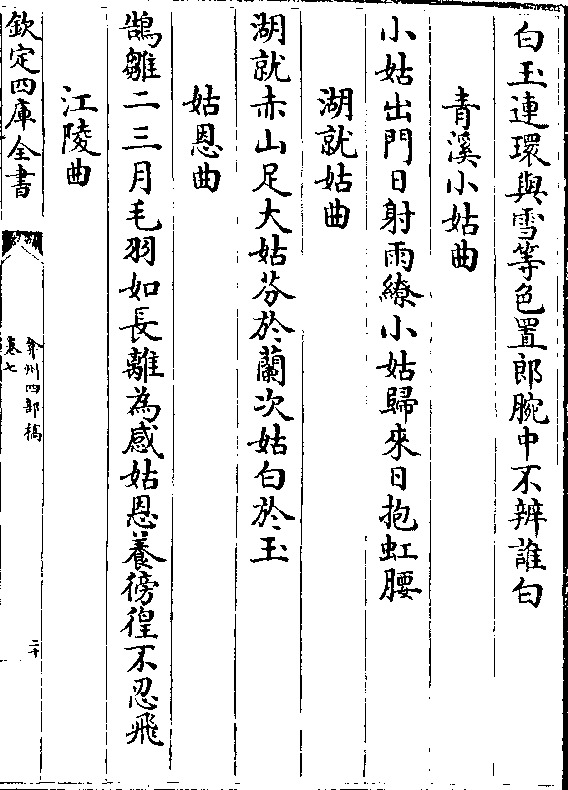 白玉連環與雪等色置郎腕中不辨誰白
青溪小姑曲
小姑出門日射雨繚小姑歸來日抱虹腰
湖就姑曲
湖就赤山足大姑芬於蘭次姑白於玉
姑恩曲
鵠雛二三月毛羽如長離為感姑恩養徬徨不忍飛
江陵曲
欽定四庫全書
弇州四部稿
卷七
二十